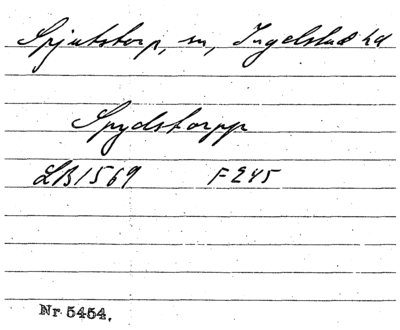 Spjutstorp, sn, Ingelstad hd
Spydstorpp
LB1569 F245
Nr 5454.